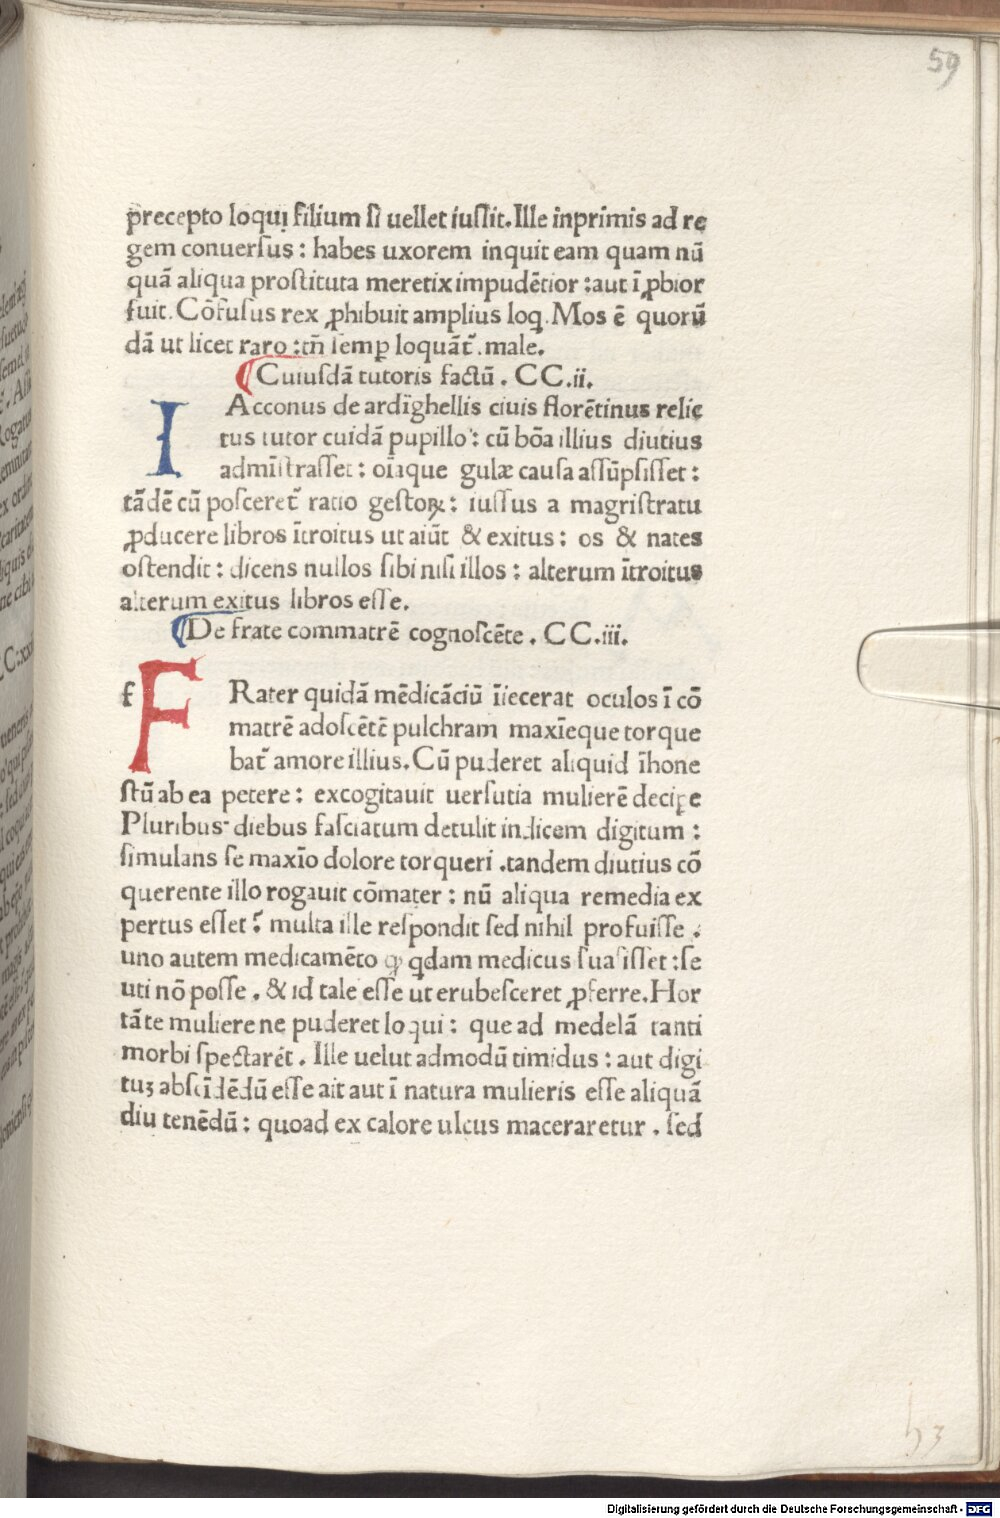 59
precepto loqui filium si uellet iussit. Ille inprimis ad re
gem conuersus : habes uxorem inquit eam quam nū
quā aliqua prostituta meretix impudētior : aut īꝓbior
fuit. Cōfusus rex ꝓhibuit amplius loq. Mos ē quorū
dā ut licet raro : tn̄ semp̱ loquāt̄ . male.
¶ Cuiusdā tutoris factū . CC.ii.
I Acconus de ardīghellis ciuis florētinus relic
tus tutor cuidā pupillo : cū bōa illius diutius
admīstrasset : oīaque gulæ causa assūpsisset :
tādē cū posceret̄ ratio gestoꝝ : iussus a magristratu
ꝓducere libros ītroitus ut aiūt & exitus : os & nates
ostendit : dicens nullos sibi nisi illos : alterum ītroitus
alterum exitus libros esse.
¶ De frate commatrē cognoscēte . CC.iii.
f F Rater quidā mēdicāciū īiecerat oculos ī cō
matrē adoscētē pulchram maxīeque torque
bat̄ amore illius. Cū puderet aliquid īhone
stū ab ea petere : excogitauit uersutia mulierē decipe
Pluribus diebus fasciatum detulit indicem digitum :
simulans se maxīo dolore torqueri . tandem diutius cō
querente illo rogauit cōmater : nū aliqua remedia ex
pertus esset ? multa ille respondit sed nihil profuisse .
uno autem medicamēto ꝙ qdam medicus suasisset : se
uti nō posse . & id tale esse ut erubesceret ꝓferre. Hor
tāte muliere ne puderet loqui : que ad medelā tanti
morbi spectarēt . Ille uelut admodū timidus : aut digi
tuꝫ abscīdēdū esse ait aut ī natura mulieris esse aliquā
diu tenēdū : quoad ex calore ulcus maceraretur . sed
h 3
Digitalisierung gefördert durch die Deutsche Forschungsgemeinschaft - DFG